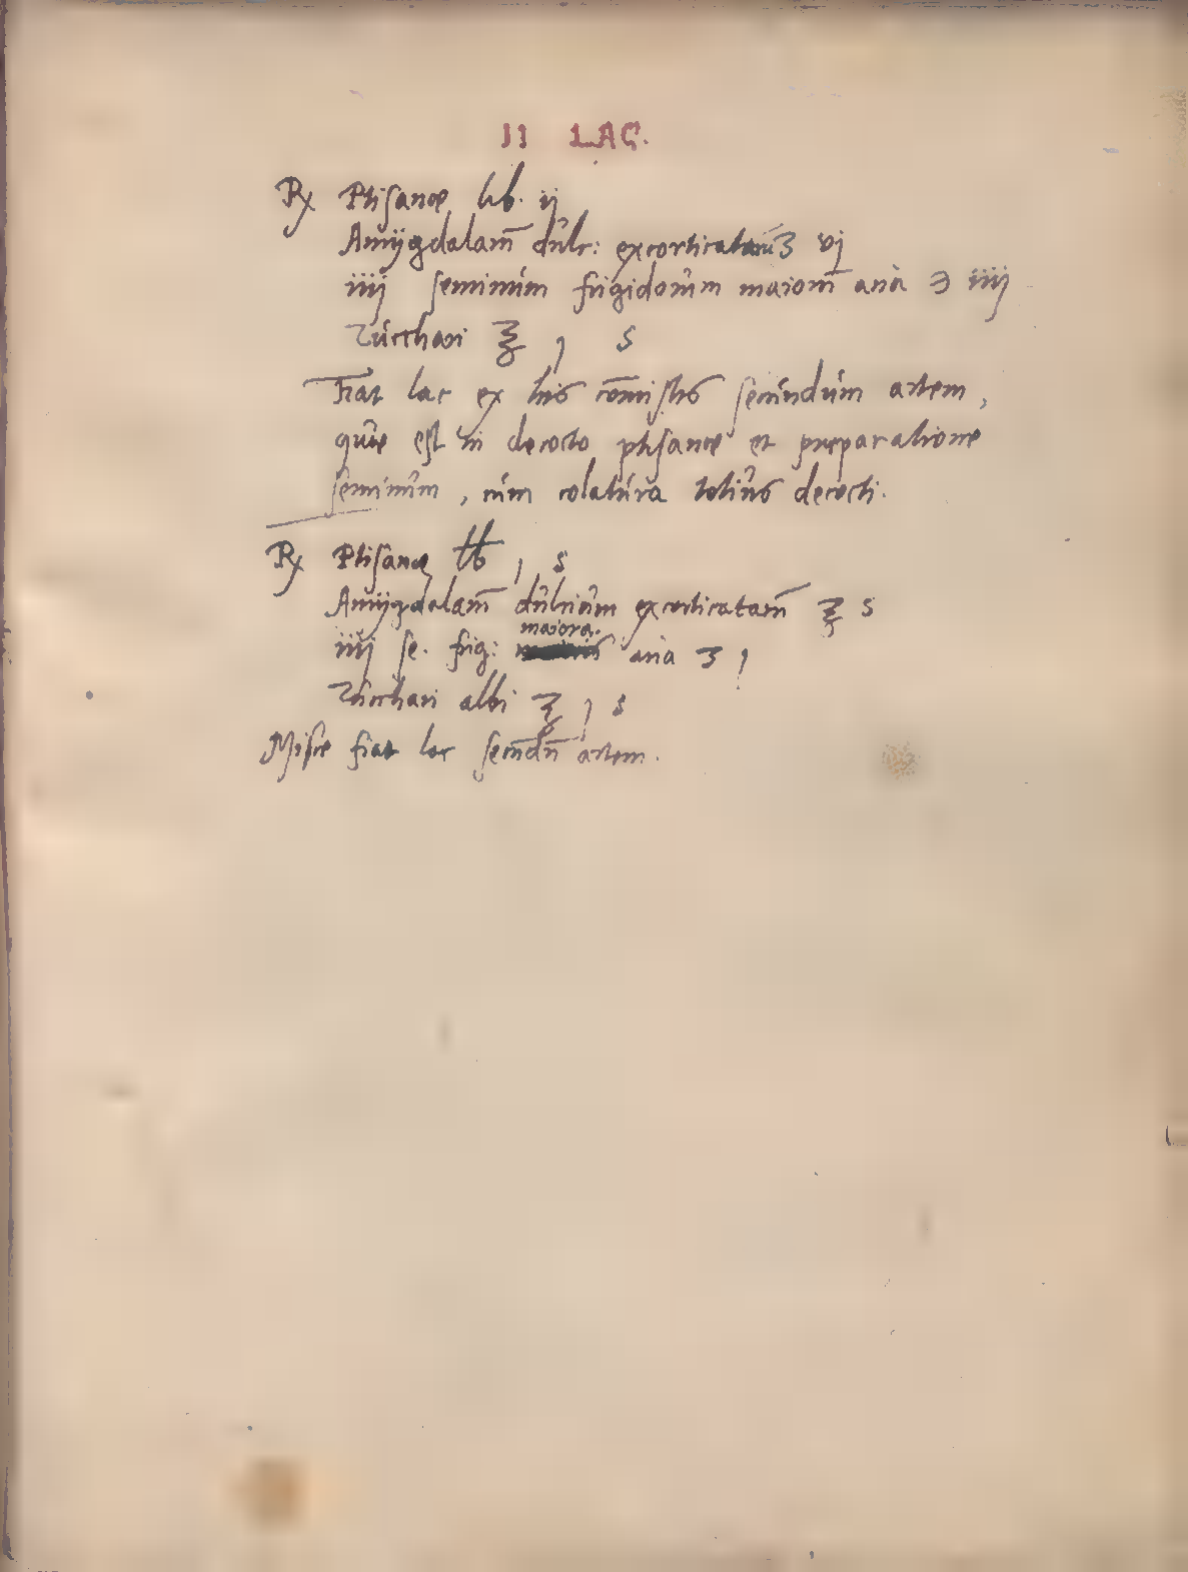 II LAC.
℞ Ptisanæ lib. ij
Amÿgdalarū dulc: excorticatarū ʒ vj
iiij seminum frigidorum maiorū ana ℈ iiij
Zucchari ℥ j s
Fiat lac ex his cōmistis secundum artem,
quæ est in decocto ptisanæ et præparatione
seminum, cum colatura totius decocti.
℞ Ptisanæ ℔ j s
Amÿgdalarū dulcium excorticatarū ℥ s
maiorū.
iiij se. frig: ana ʒ j
Zucchari albi ℥ j s
Misce fiat lac secūdū artem.